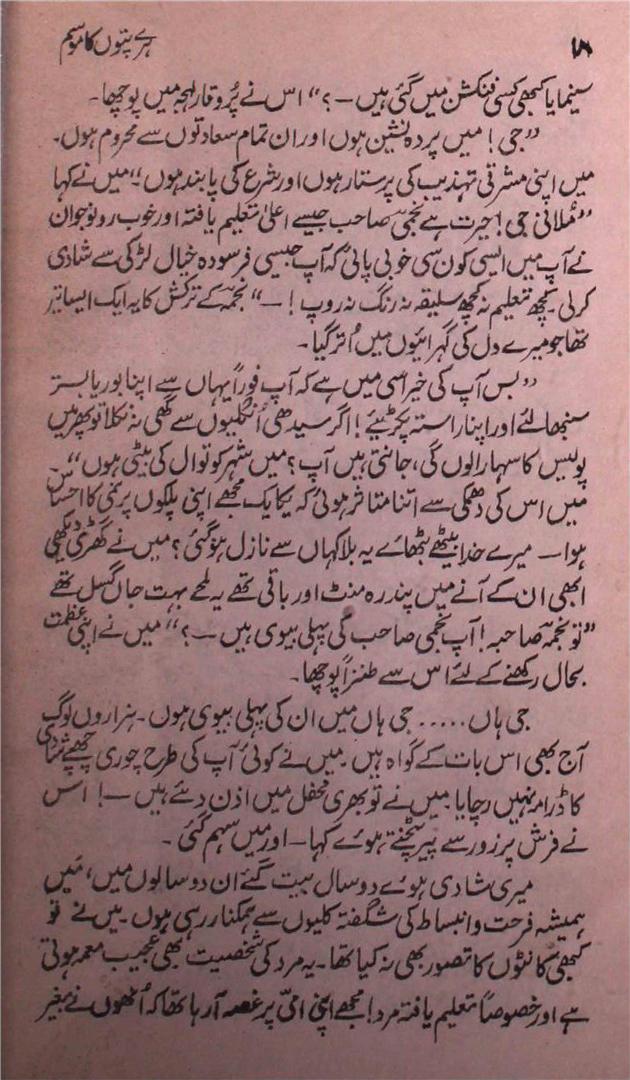 ۱۸ ہرے پتوں کا موسم
سینما یا کبھی کسی فنکشن میں گئی ہیں —؟“ اس نے پُر وقار لہجہ میں پوچھا۔
”جی! میں پردہ نشین ہوں اور ان تمام سعادتوں سے محروم ہوں۔
میں اپنی مشرقی تہذیب کی پرستار ہوں اور شرع کی پابند ہوں“۔ میں نے کہا
”مُلانی جی! حیرت ہے نجمی صاحب جیسے اعلیٰ تعلیم یافتہ اور خوب رو نوجوان
نے آپ میں ایسی کون سی خوبی پائی کہ آپ جیسی فرسودہ خیال لڑکی سے شادی
کر لی۔ کچھ تعلیم نہ کچھ سلیقہ نہ رنگ نہ روپ! —“ نجمہ کے ترکش کا یہ ایک ایسا تیر
تھا جو میرے دل کی گہرائیوں میں اُتر گیا۔
”بس آپ کی خیر اسی میں ہے کہ آپ فوراً یہاں سے اپنا بوریا بستر
سنبھالئے اور اپنا راستہ پکڑیئے! اگر سیدھی اُنگلیوں سے گھی نہ نکلا تو پھر میں
پولیس کا سہارا لوں گی، جانتی ہیں آپ؟ میں شہر کوتوال کی بیٹی ہوں“۔
میں اس کی دھمکی سے اتنا متاثر ہوئی کہ یکایک مجھے اپنی پلکوں پر نمی کا احساس
ہوا — میرے خدا بیٹھے بٹھائے یہ بلا کہاں سے نازل ہو گئی؟ میں نے گھڑی دیکھی
ابھی ان کے آنے میں پندرہ منٹ اور باقی تھے یہ لمحے بہت جاں گسل تھے
”تو نجمہ صاحبہ! آپ نجمی صاحب کی پہلی بیوی ہیں —؟“ میں نے اپنی عظمت
بحال رکھنے کے لئے اس سے طنزاً پوچھا۔
جی ہاں ..... جی ہاں میں ان کی پہلی بیوی ہوں۔ ہزاروں لوگ
آج بھی اس بات کے گواہ ہیں۔ میں نے کوئی آپ کی طرح چوری چھپے شادی
کا ڈرامہ نہیں رچایا میں نے تو بھری محفل میں اذن دئے ہیں —! اس
نے فرش پر زور سے پیر پٹختے ہوئے کہا — اور میں سہم گئی۔
میری شادی ہوئے دو سال بیت گئے ان دو سالوں میں، میں
ہمیشہ فرحت و انبساط کی شگفتہ کلیوں سے ہمکنار رہی ہوں۔ میں نے تو
کبھی کانٹوں کا تصور بھی نہ کیا تھا۔ یہ مرد کی شخصیت بھی عجیب معمہ ہوتی
ہے اور خصوصاً تعلیم یافتہ مرد! مجھے اپنی امّی پر غصہ آ رہا تھا کہ اُنھوں نے بغیر